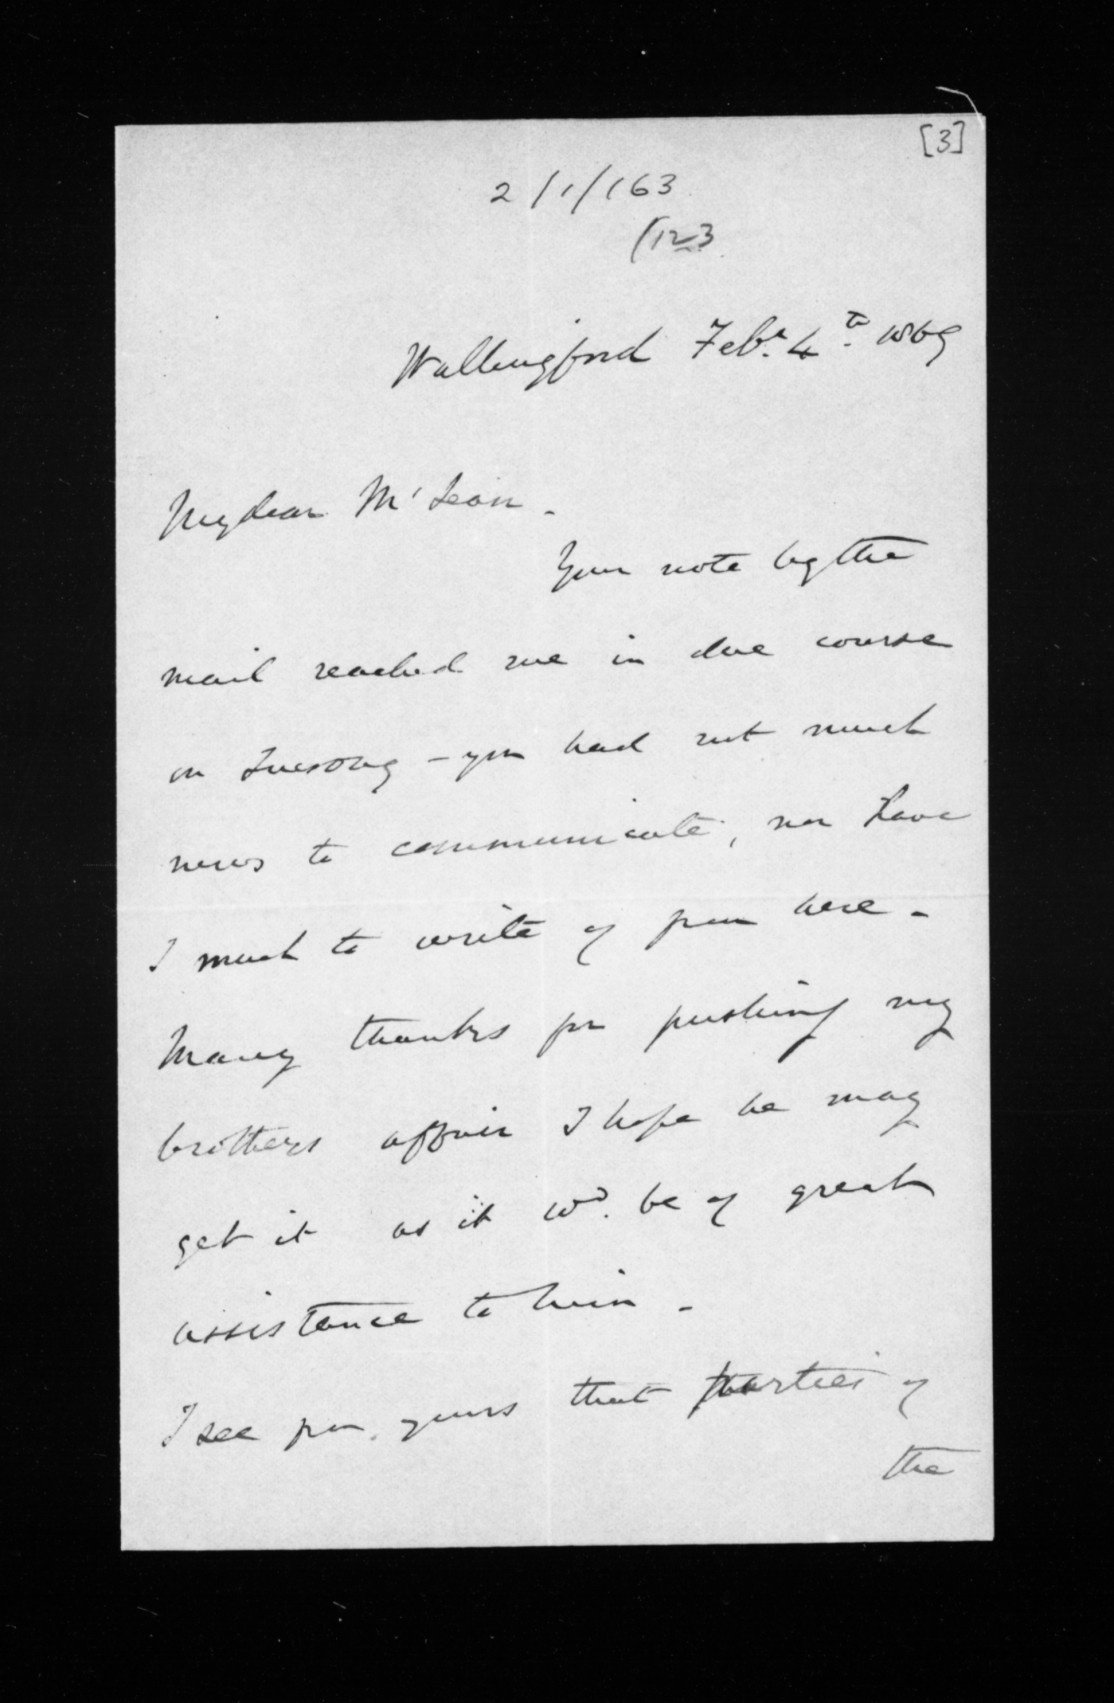 [3]
2/1/163
/123
Wallingford Feby. 4th. 1869
My dear McLean.
Your note by the
mail reached me in due course
on Tuesday - you had not much
news to communicate, nor have
I much to write of from here.
Many thanks for pushing my
brothers affair I hope he may
get it as it wd. be of great
assistance to him.
I see from yours that parties of
the